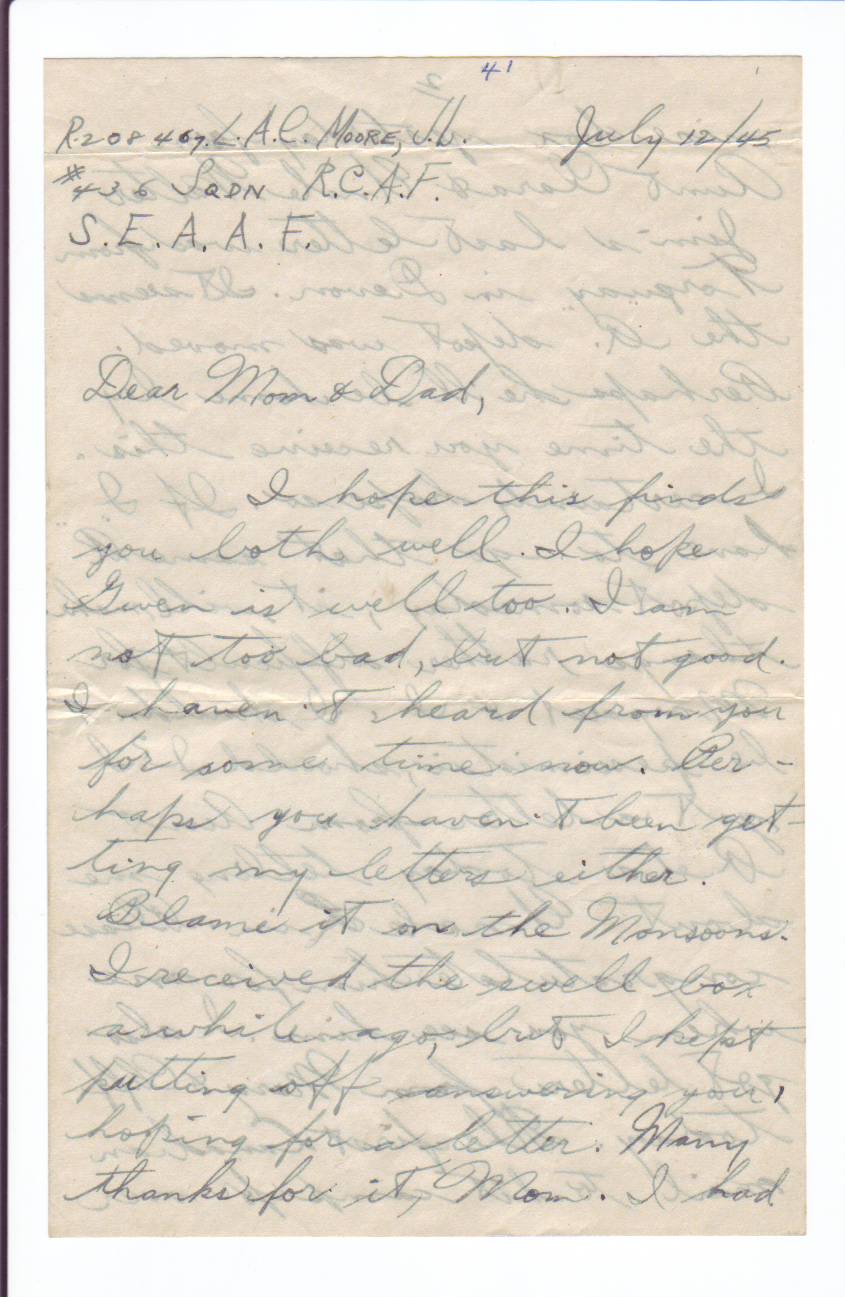 41
R.208467. L.A.C. MOORE, J.W. July 12/45
#436 SQDN R.C.A.F.
S.E.A.A.F.
Dear Mom & Dad,
I hope this finds
you both well. I hope
Gwen is well too. I am
not too bad, but not good.
I haven't heard from you
for some time now. Per-
haps you haven't been get-
ting my letters either.
Blame it on the Monsoons.
I received the swell box
awhile ago, but I kept
putting off answering you,
hoping for a letter. Many
thanks for it, Mom. I had